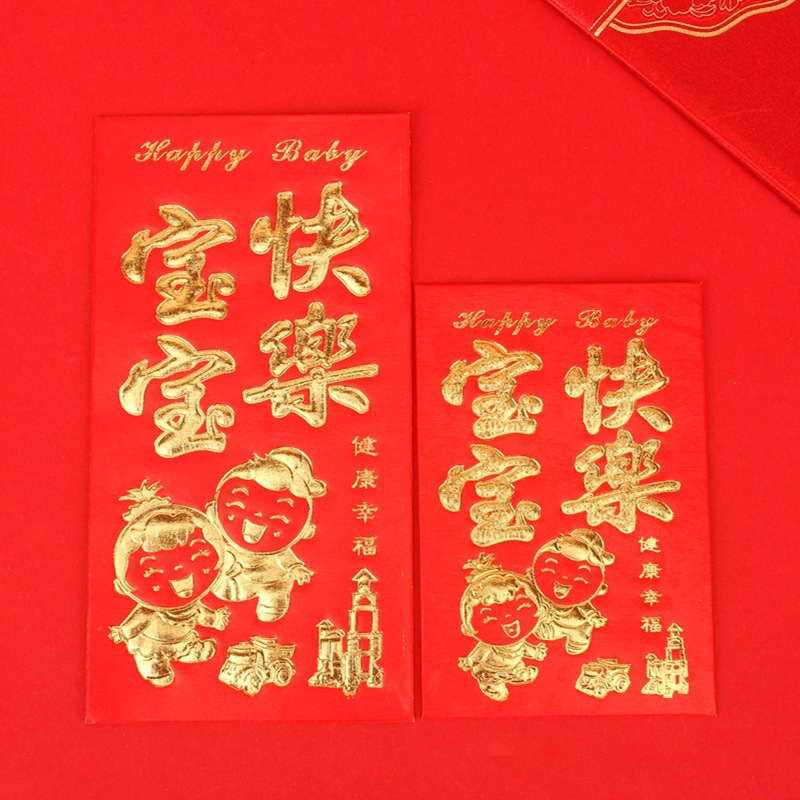 Happy Baby
快樂
宝宝
健康幸福
Happy Baby
快樂
宝宝
健康幸福